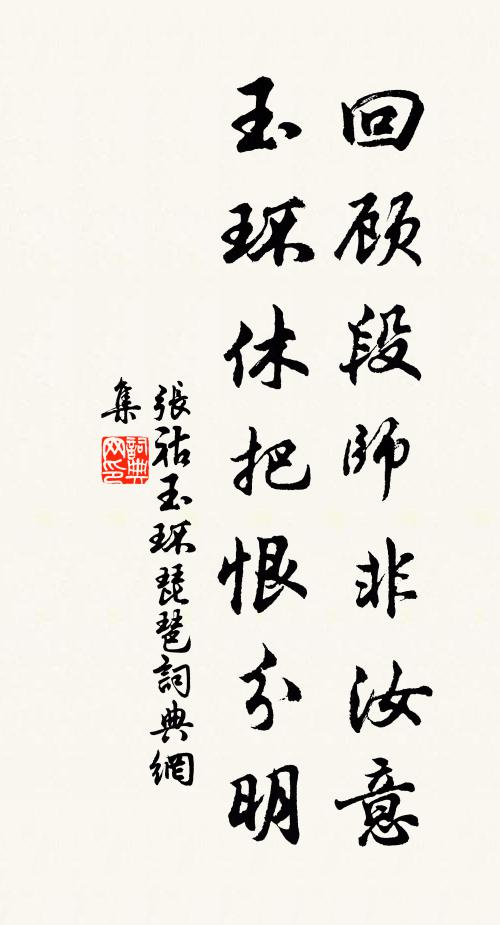 回顾段師非汝意
玉环休把恨分明
張祜玉环琵琶詞典網
集
詞典
网印